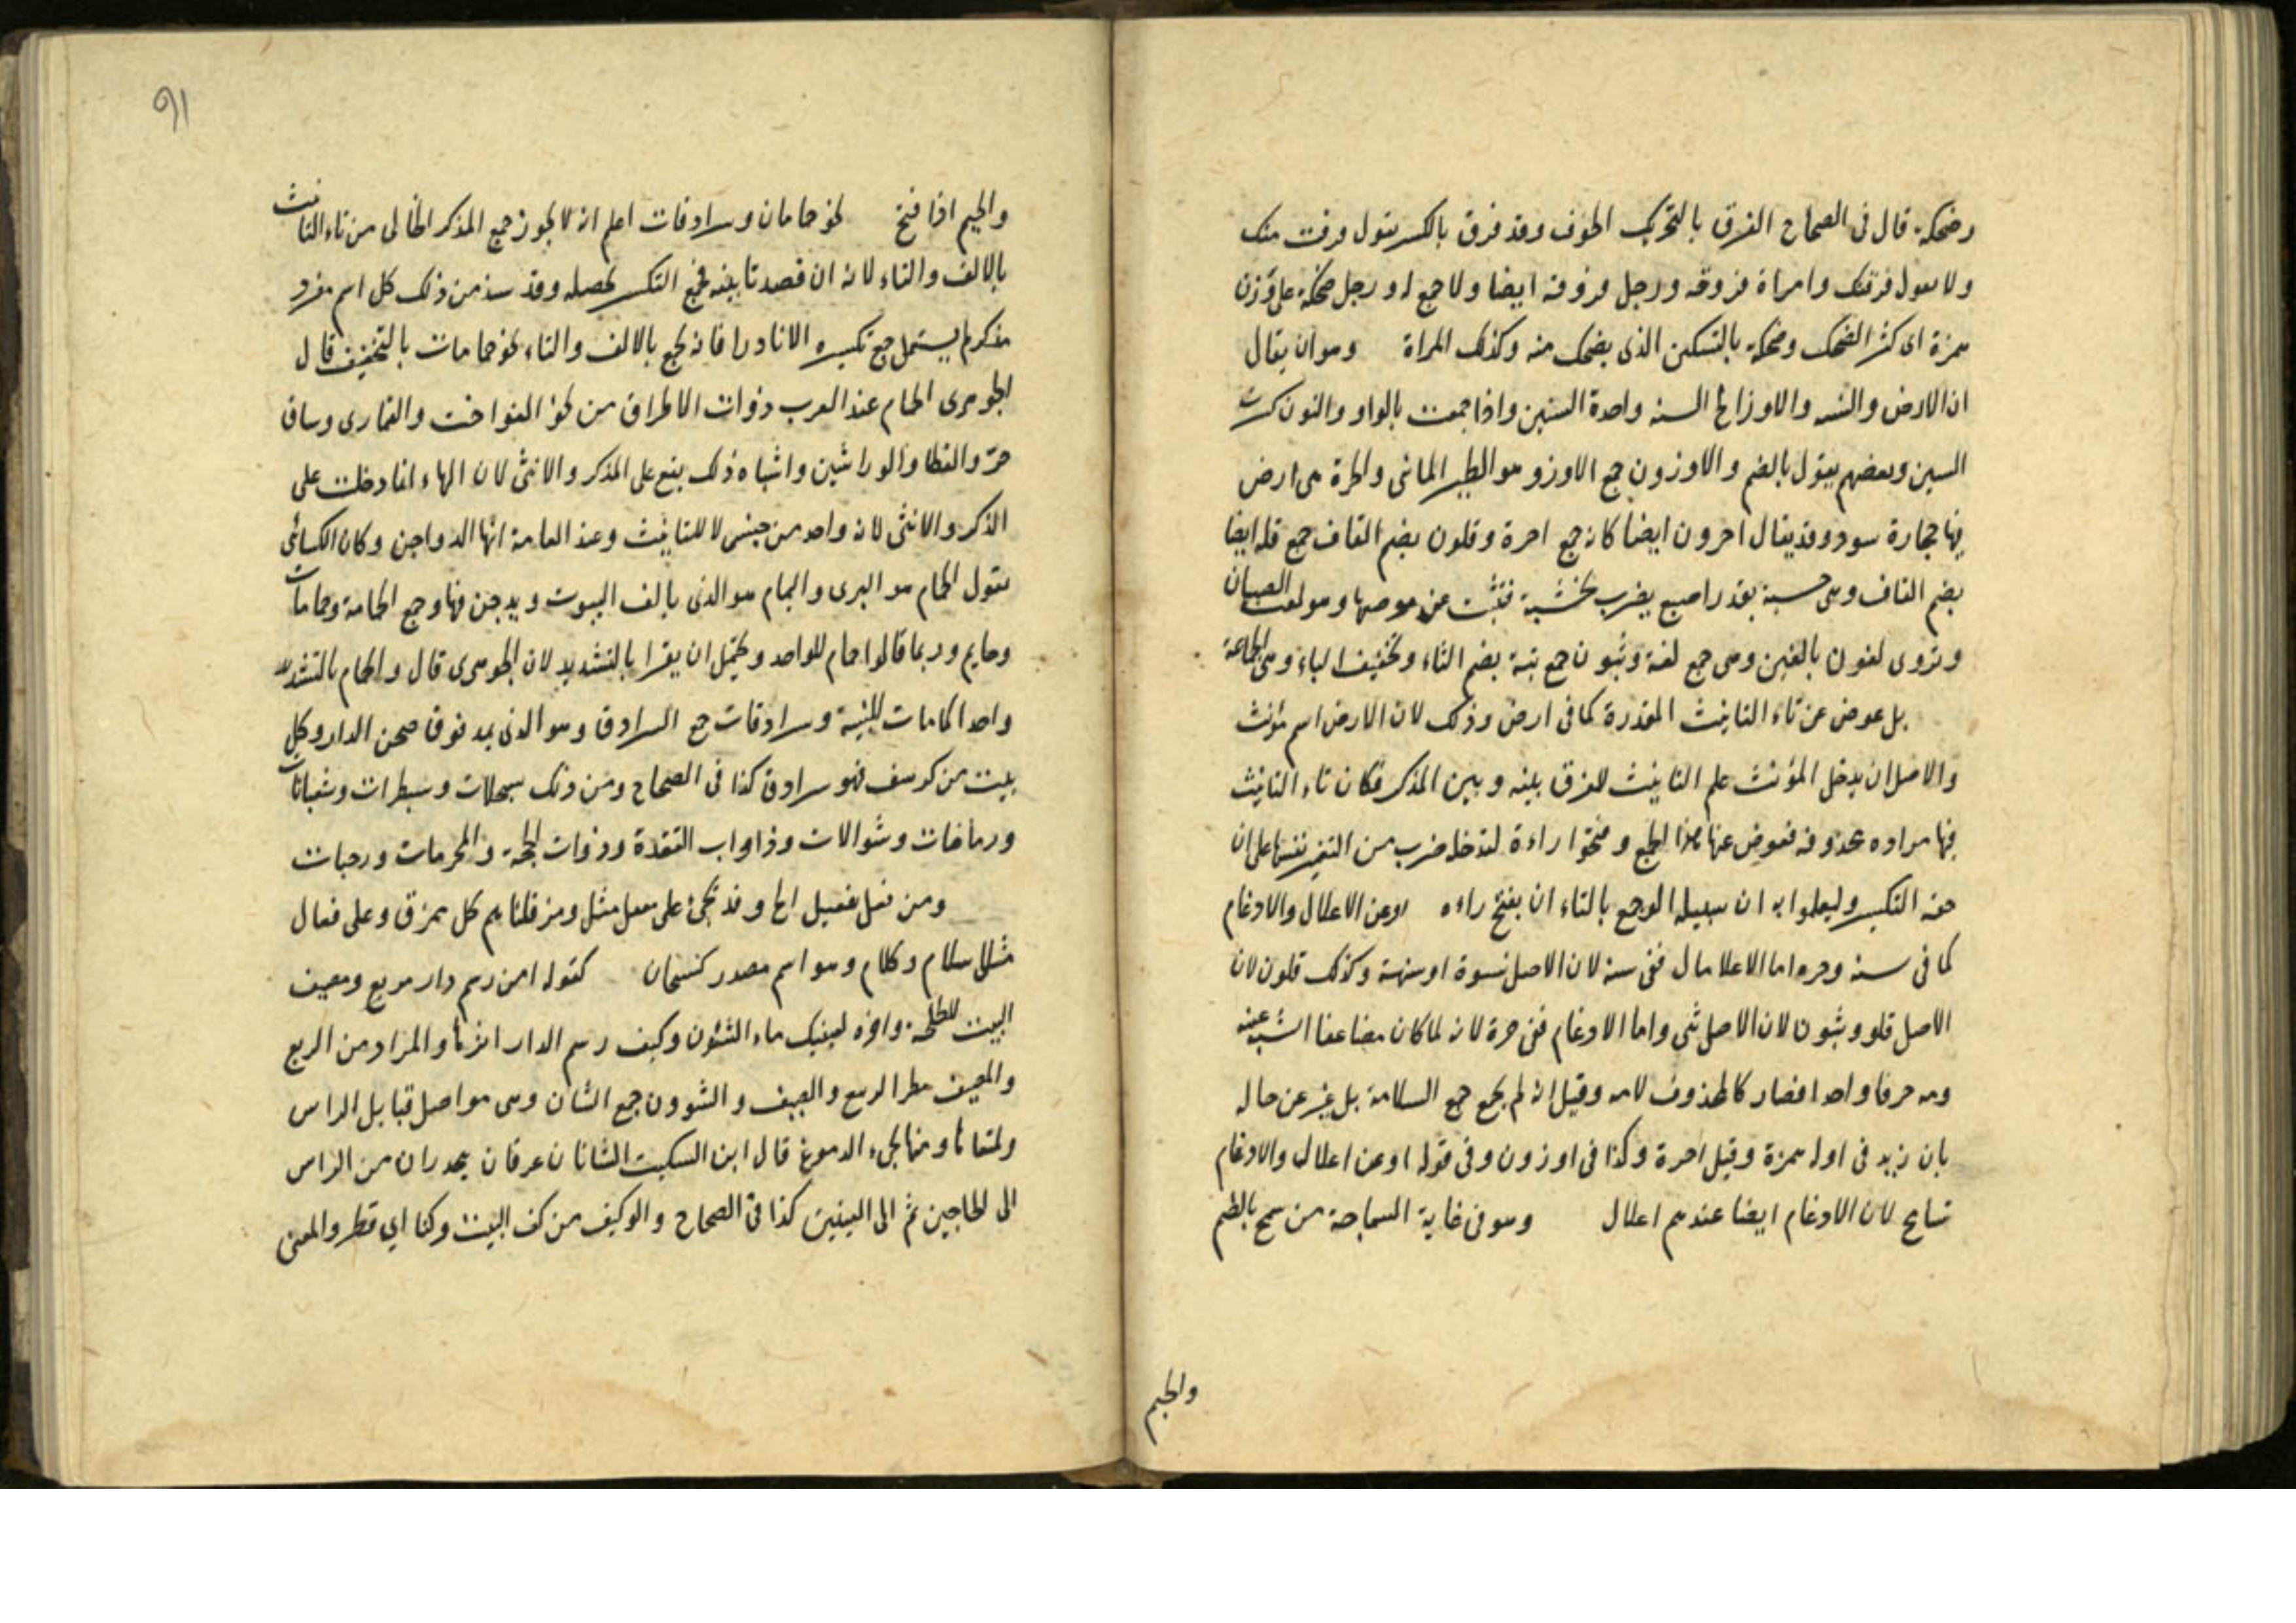 وضحكة قال فى الصحاح الفرق بالتحريك الخوف وقد فرق بالكسر تقول فرقت منك
ولا تقول فرقتك وامراة فروقة ورجل فروقة ايضا ولا جمع له ورجل ضحكة على وزن
همزة اى كثير الضحك وضحكة بالتسكين الذى يضحك منه وكذلك المراة وهو ان يقال
ان الارض والسنه والاوز الخ السنه واحدة السنين واذا جمعت بالواو والنون كسرت
السين وبعضهم يقول بالضم والاوزون جمع الاوز وهو الطير المائى والحرة هى ارض
فيها حجارة سود وقد يقال احرون ايضا كانه جمع احرة وقلون بضم القاف جمع قلة ايضا
بضم القاف وهى خسبة بقدر اصبع يضرب بخشبة فتثب عن موضعها وهو لعب الصبيان
وتروى لغون بالغين وهى جمع لغة وثبون جمع ثبة بضم الثاء وتخفيف الباء وهى الجماعة
بل عوض عن تاء التانيث المقدرة كما فى ارض وذلك لان الارض اسم مؤنث
والاصل ان يدخل المؤنث علم التانيث للفرق بينه وبين المذكر فكان تاء التانيث
فيها مراده محذوفه فعوض عنها هذا الجمع وفتحوا راءة لتدخله ضرب من التغير تنبيها على ان
حقه التكسير وليعلموا به ان سبيله لو جمع بالتاء ان يفتح راءه او عن الاعلال والادغام
كما فى سنه وحره اما الاعلال ففى سنه لان الاصل سنوة او سنهة وكذلك قلون لان
الاصل قلو وثبون لان الاصل ثبى واما الادغام ففى حرة لانه لما كان مضاعفا اشبه عينه
ولامه حرفا واحدا فصار كالمحذوف لامه وقيل انه لم يجمع جمع السلامة بل غير عن حاله
بان زيد فى اوله همزة وقيل احرة وكذا فى اوزون وفى قوله او عن اعلال والادغام
تسامح لان الادغام ايضا عندهم اعلال وهو فى غاية السماجة من سمج بالضم
والجيم
91
والجيم اذا قبح نحو حمامات وسرادقات اعلم انه لا يجوز جمع المذكر الخالى من تاء التانيث
بالالف والتاء لانه ان قصد تانيثه فجمع التكسير تحصله وقد شذ من ذلك كل اسم مفرد
مذكر لم يستعمل جمع تكسيره الا نادرا فانه يجمع بالالف والتاء نحو حمامات بالتخفيف قال
الجوهرى الحمام عند العرب ذوات الاطواق من نحو الفواخت والقمارى وساق
حر والقطا والوراشين واشباه ذلك يقع على المذكر والانثى لان الهاء انما دخلت على
الذكر والانثى لانه واحد من جنس لا للتانيث وعند العامة انها الدواجن وكان الكسائى
يقول الحمام هو البرى واليمام هو الذى يالف البيوت ويدجن فيها وجمع الحمامة وحمامات
وحمايم وربما قالوا حمام للواحد ويحتمل ان يقرا بالتشديد لان الجوهرى قال والحمام بالتشديد
واحد الحمامات المبنية وسرادقات جمع السرادق وهو الذى يمد فوق صحن الدار وكل
بيت من كرسف فهو سرادق كذا فى الصحاح ومن ذلك سجلات وسبطرات وشعبانات
ورمضانات وشوالات وذاوات القعدة وذوات الحجة والمحرمات ورجبات
ومن فعل تفعيل الخ وقد يجئ على مفعل مثل ومزقناهم كل ممزق وعلى فعال
مثل سلام وكلام وهو اسم مصدر كسبحان كقوله امن رسم دار مربع ومصيف
البيت للحطيئة واخره لعينيك ماء الشئون وكيف رسم الدار اثرها والمراد من الربع
والمصيف مطر الربيع والصيف والشوون جمع الشان وهى مواصل قبايل الراس
وملتقاها ومنها يجئ الدموع قال ابن السكيت الشانان عرقان يحدران من الراس
الى الحاجبين ثم الى العينين كذا فى الصحاح والوكيف من وكف البيت وكفا اى قطر والمعنى